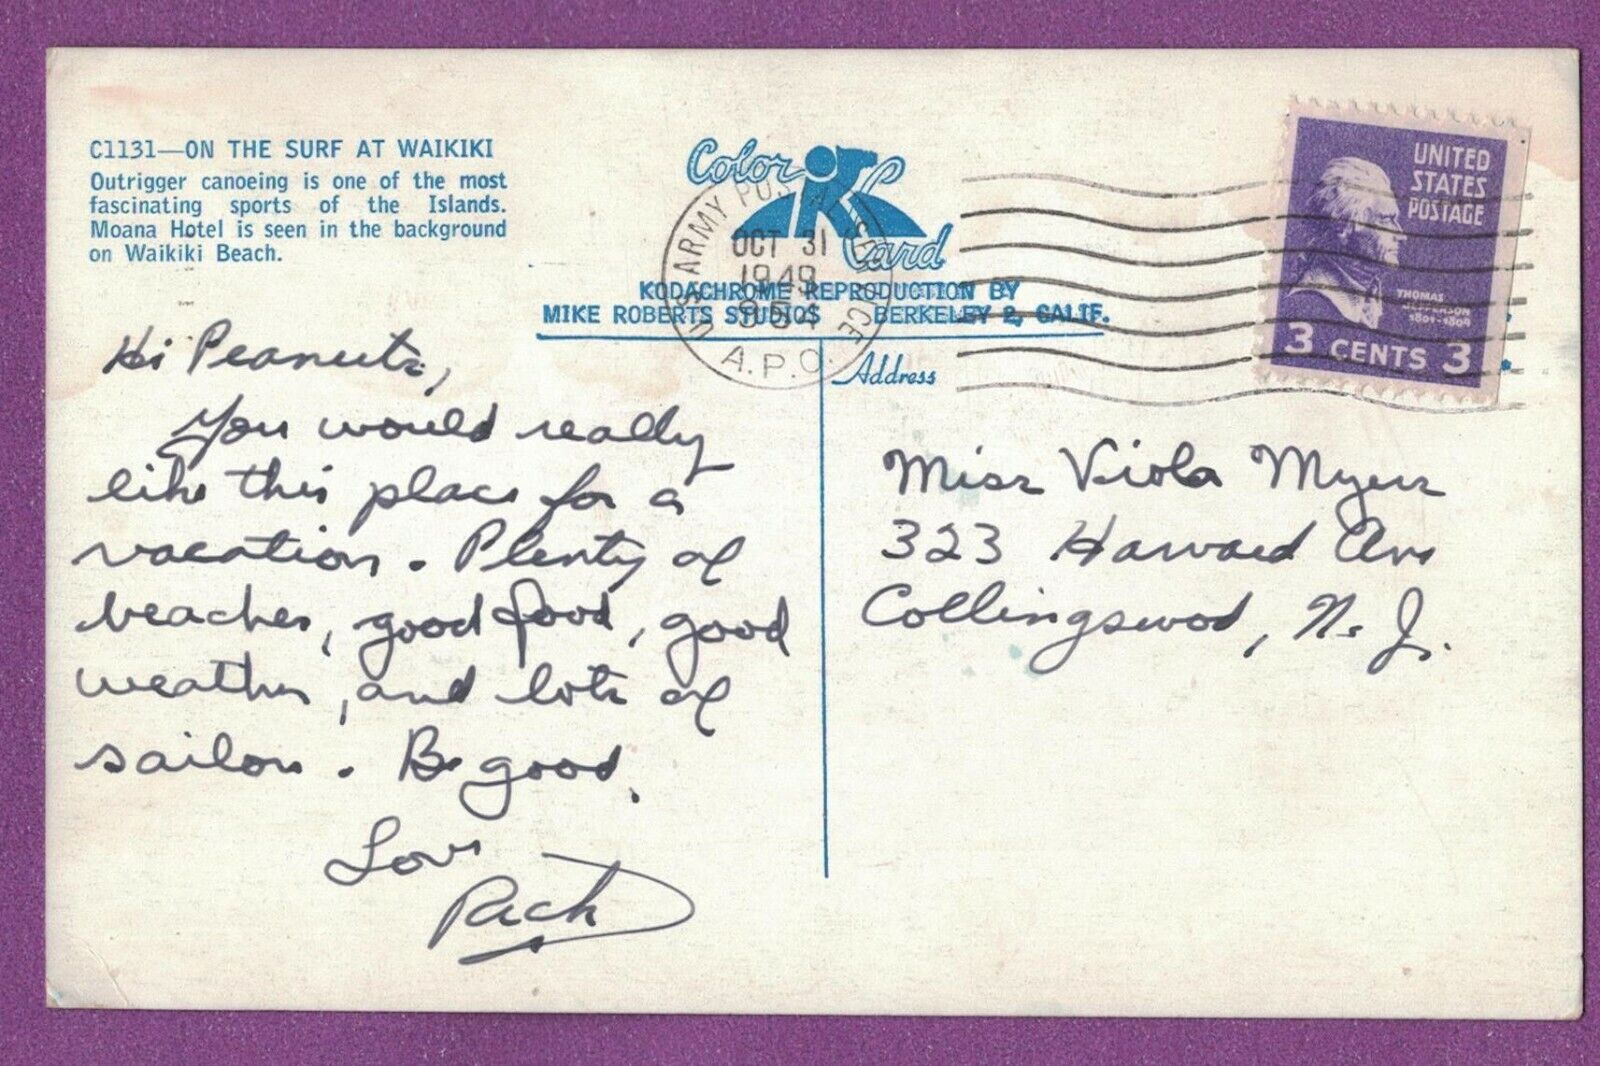 C1131—ON THE SURF AT WAIKIKI
Outrigger canoeing is one of the most
fascinating sports of the Islands.
Moana Hotel is seen in the background
on Waikiki Beach.
Color Card
KODACHROME REPRODUCTION BY
MIKE ROBERTS STUDIOS BERKELEY 2, CALIF.
US ARMY POSTAL SERVICE
OCT 31
1949
A.P.O.
UNITED
STATES
POSTAGE
THOMAS
JEFFERSON
1801-1809
3 CENTS 3
Address
Hi Peanuts,
You would really
like this place for a
vacation. Plenty of
beaches, good food, good
weather, and lots of
sailors. Be good.
Love
Miss Viola Myers
323 Harvard Ave
Collingswood, N. J.